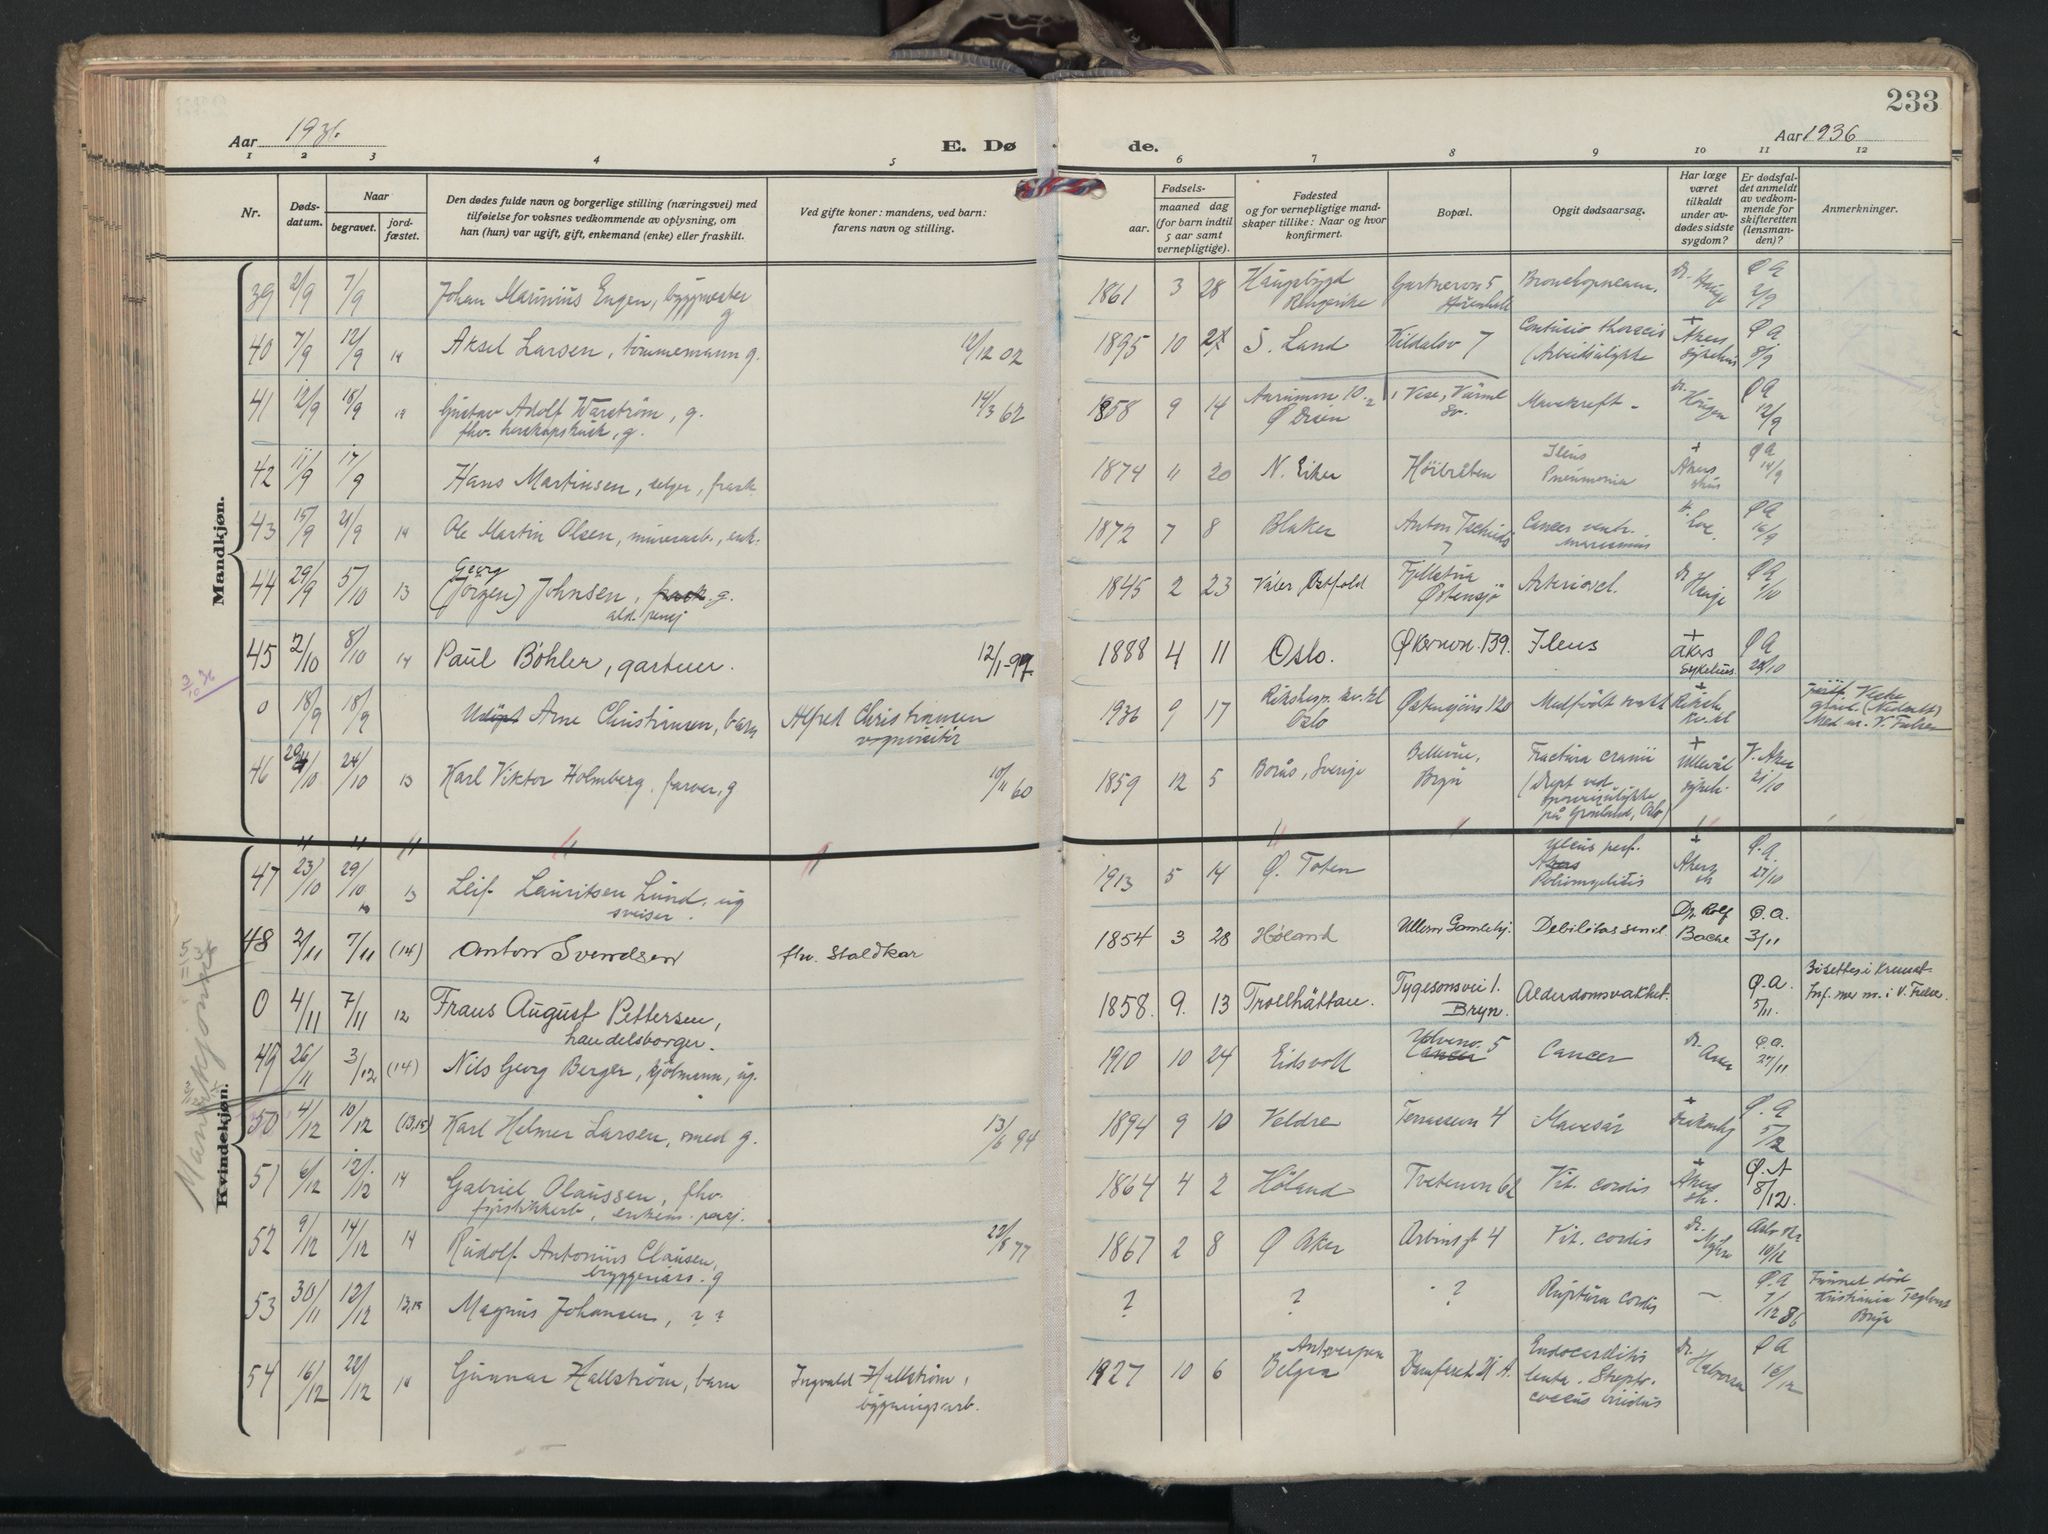 233
Aar 1936.
E. Dø
de.
Aar 1936
1 2 3 4 5 6 7 8 9 10 11 12
Nr.
Døds-
datum.
Naar
begravet.
jord-
fæstet.
Den dødes fulde navn og borgerlige stilling (næringsvei) med
tilføielse for voksnes vedkommende av oplysning, om
han (hun) var ugift, gift, enkemand (enke) eller fraskilt.
Ved gifte koner: mandens, ved barn:
farens navn og stilling.
Fødsels-
aar. maaned dag
(for barn indtil
5 aar samt
vernepligtige).
Fødested
og for vernepligtige mand-
skaper tillike: Naar og hvor
konfirmert.
Bopæl.
Opgit dødsaarsag.
Har læge
været
tilkaldt
under av-
dødes sidste
sygdom?
Er dødsfal-
det anmeldt
av vedkom-
mende for
skifteretten
(lensman-
den)?
Anmerkninger.
Mandkjøn.
39 2/9 7/9 Johan Marinius Engen, byggmester g 1861 3 28 Haugsbygd Ringerike Gartnervn 5 Bronchopneum. Dr. Hauge Ø A 2/9
40 7/9 12/9 14 Aksel Larsen, tømmermann g. 12/12 02 1895 10 S. Land Kildalsv 7 Contusio thoracis (Arbeidsulykke + Akers sykehus Ø A 8/9
41 12/9 18/9 14 Gustav Adolf Warström, g. 14/3 62 1858 9 14 i Vise, Värml Sv. Mavekreft - Dr. Ø A 12/9
fhv. herskapskusk, g.
42 11/9 17/9 Hans Martinsen, selger, frask 1874 11 20 N. Eiker Høibråten Ileus Pneumonia + Akers Ø A 14/9
43 15/9 21/9 14 Ole Martin Olsen, murerarb., enk. 1872 7 8 Blaker Anton Tschuds 7 Cancer ventr. marasmus Dr. Loe. Ø A 16/9
44 29/9 5/10 13 Georg (Jörgen) Johnsen, frask. g. ald. pensj 1845 2 23 Våler Østfold Østensjø Arterioscl. Dr Hauge Ø A 1/10
3/10 36
45 2/10 8/10 14 Paul Böhler, gartner. 12/1-97 1888 4 11 Oslo. Økernvn. 139. Ileus + Akers sykehus. Ø A
0 18/9 18/9 Udöpt Arne Christiansen, barn Alfred Christiansen 1936 9 17 Rikshosp. kv. kl Oslo Østensjövn 120 Medfödt svakh + Riksh. kv. kl
46 24/10 13 Karl Viktor Holmberg, farver, g 10/11 60 1859 12 5 Borås, Sverige Bellevue, Bryn Fractura cranii (Drept ved på Grönland, Oslo) + Ullevål sykeh. V. Aker 21/10
Kvindekjøn.
Mandkjön
47 23/10 29/10 13 Leif Lauritsen Lund, ug sveiser. 1913 5 14 Ø. Toten Ulcus perf. Akers Poliomyelitis + Akers sh Ø. A. 27/10
48 2/11 7/11 (14) Anton Svendsen fhv. Staldkar 1854 3 28 Høland Ullern Gamlehj. Debilitas senil Dr. Rolf Bache Ø. A. 3/11
0 4/11 7/11 12 Frans August Pettersen, handelsborger. 1858. 9. 13 Trollhättan. Tygesonsvei 1. Bryn. Alderdomsvakhet. Ø. A. 5/11. Bisettes i Kremat.
49 26/11 3/12 (14) Nils Georg Berger, kjölmann, ug. 1910 10 24 Eidsvoll Ulvenv. 5 Cancer Cancer Dr. Ø. A. 27/11
50 4/12 10/12 (13,14) Karl Helmer Larsen, smed g. 13/6 94 1894 9 10 Veldre Terrassevn 4 Mavesår + Ø. A 5/12
51 6/12 12/12 14 Gabriel Olaussen, fhv. fyrstikkarb, enkem. pensj. 1864 4 2 Höland Tvetenvn 62 Vit. cordis + Akers sh. Ø. A 8/12.
52 9/12 14/12 14 Rudolf Antonius Clausen, bryggeriarb. g 22/8 77 1867 2 8 Ø Aker Arbinsgt 4 Vit. cordis Dr. 10/12
53 30/11 12/12 13,14 Magnus Johansen, ? ? ? ? ? Ruptura cordis - Ø. A 7/12 36 Funnet död Kristiania Teglverk Bryn
54 16/12 22/12 14 Gunnar Hallström, barn Ingvald Hallström, bygningsarb. 1927 10 6 Antwerpen Belgia Endocarditis lenta. Strepto- coccus viridus Dr. Halvorsen Ø A 16/12